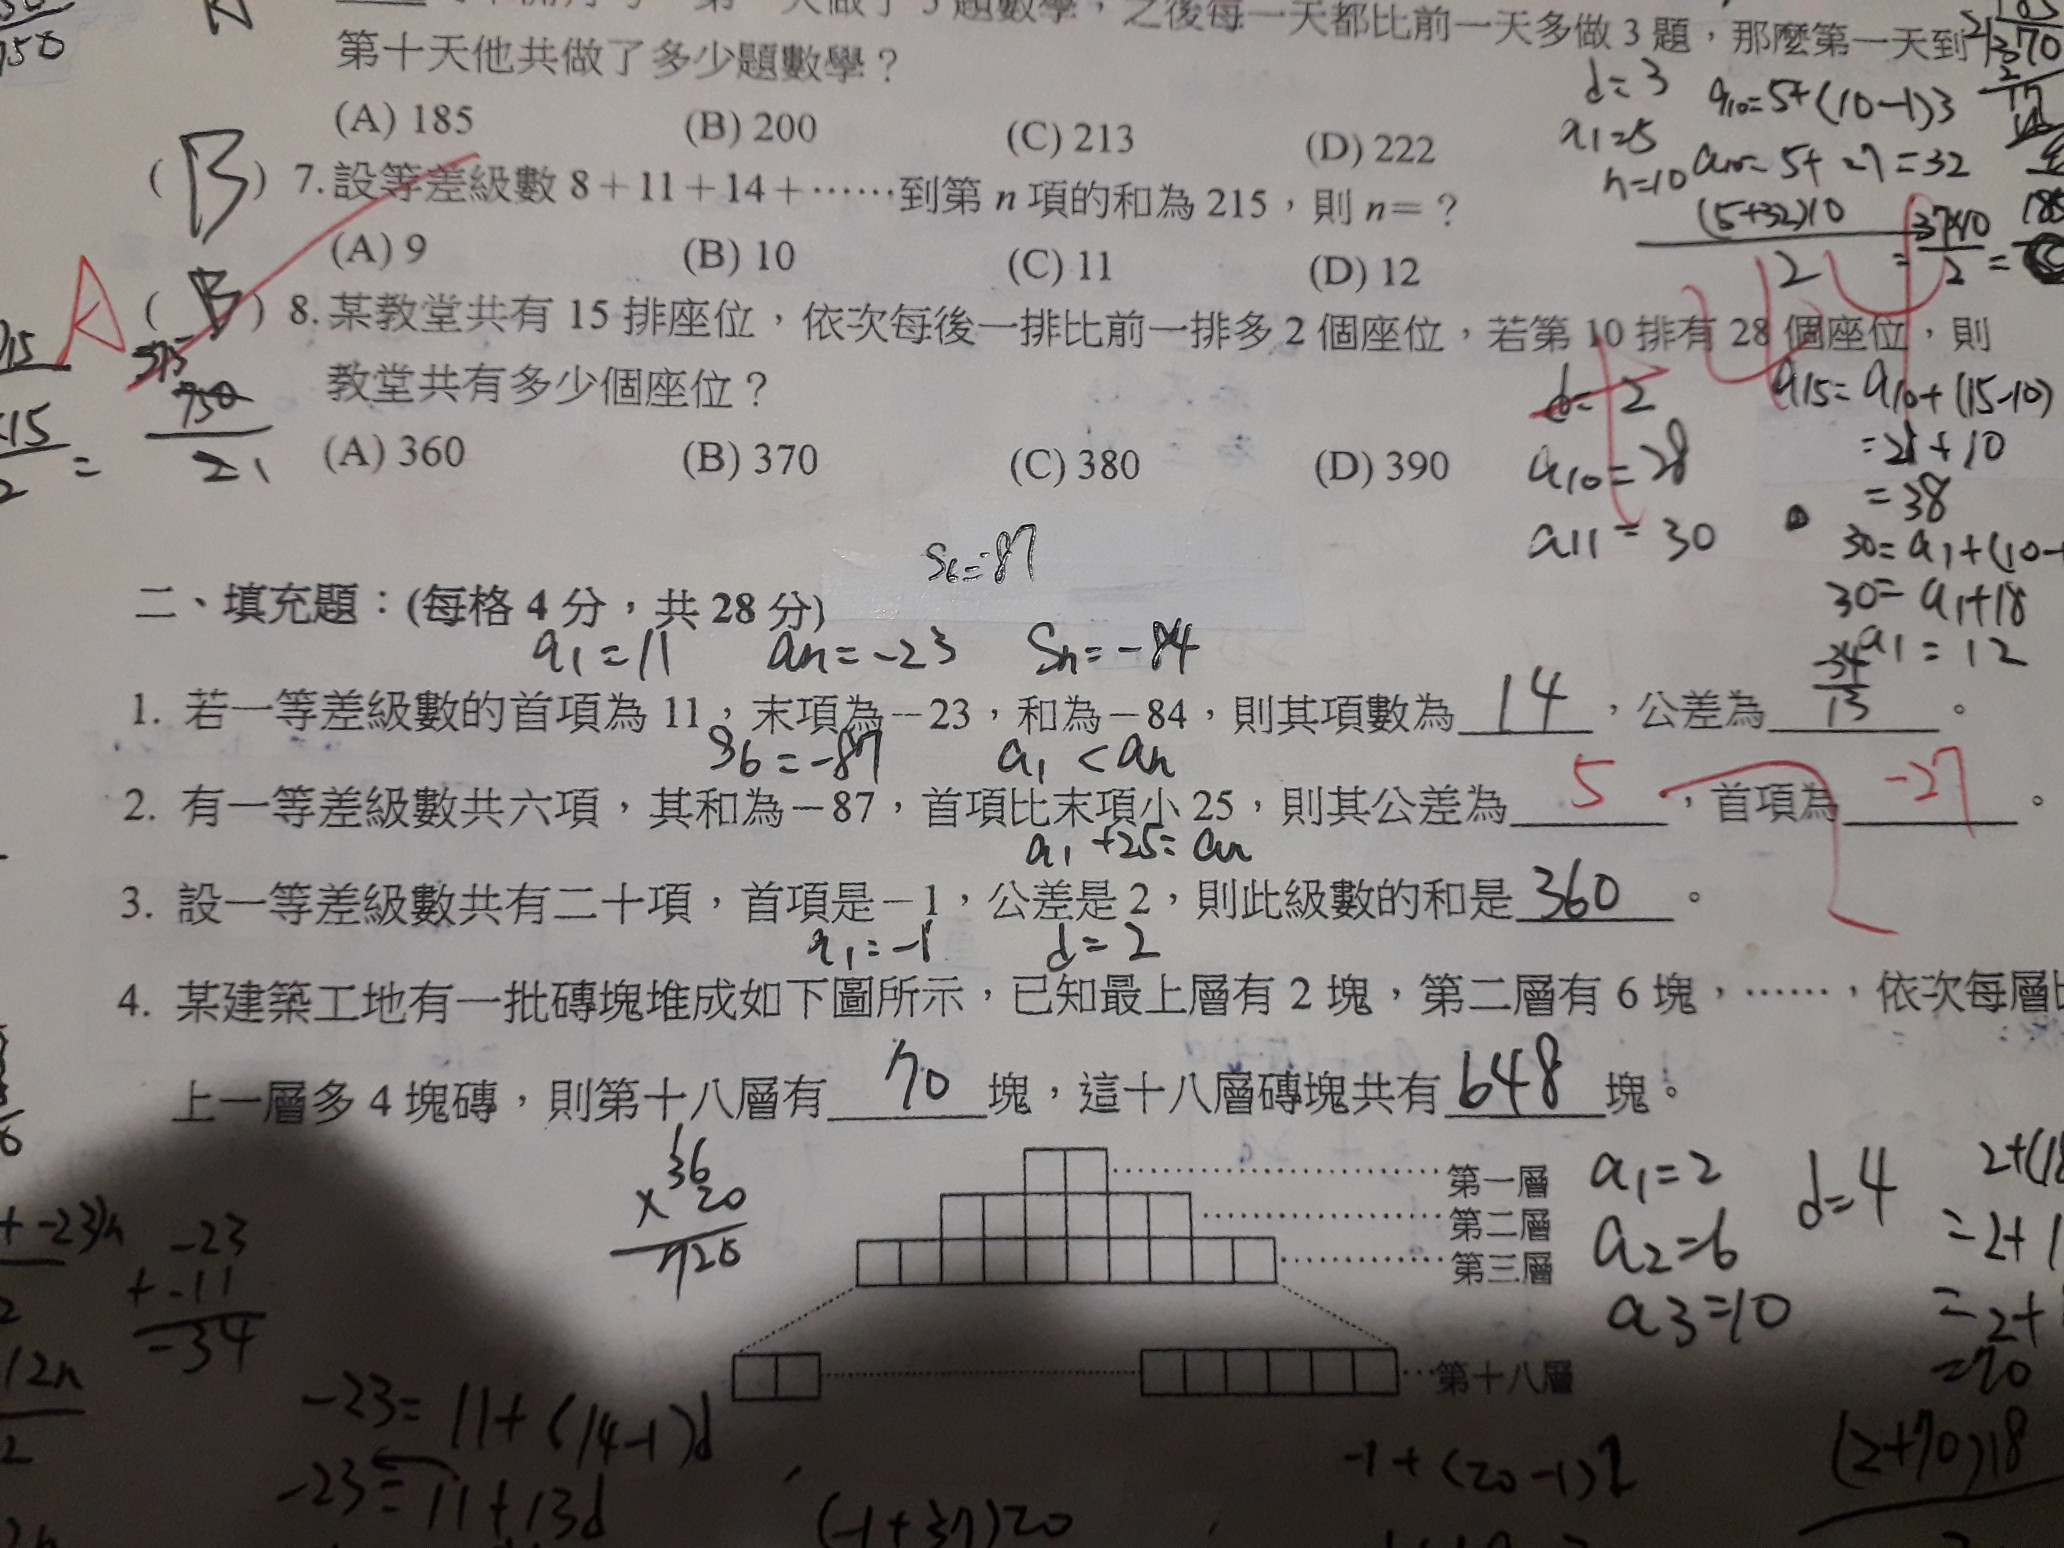 第十天他共做了多少題數學？
(A) 185 (B) 200 (C) 213 (D) 222
d=3 a10=5+(10-1)3
a1=5
n=10 a10=5+27=32
(5+32)10
2
=37×10
2
=
( B ) 7. 設等差級數 8＋11＋14＋……到第 n 項的和為 215，則 n=？
(A) 9 (B) 10 (C) 11 (D) 12
A ( B ) 8. 某教堂共有 15 排座位，依次每後一排比前一排多 2 個座位，若第 10 排有 28 個座位，則
教堂共有多少個座位？
(A) 360 (B) 370 (C) 380 (D) 390
d=2
a10=28
a11=30
a15=a10+(15-10)
=28+10
=38
30=a1+(10-
30=a1+18
a1=12
S6=87
二、填充題：(每格 4 分，共 28 分)
a1=11 an=-23 Sn=-84
1. 若一等差級數的首項為 11，末項為－23，和為－84，則其項數為 14 ，公差為 -34/13 。
S6=-87 a1<an
2. 有一等差級數共六項，其和為－87，首項比末項小 25，則其公差為 5 ，首項為 -27 。
a1+25=an
3. 設一等差級數共有二十項，首項是－1，公差是 2，則此級數的和是 360 。
a1=-1 d=2
4. 某建築工地有一批磚塊堆成如下圖所示，已知最上層有 2 塊，第二層有 6 塊，……，依次每層比
上一層多 4 塊磚，則第十八層有 70 塊，這十八層磚塊共有 648 塊。
36
×20
720
第一層
第二層
第三層
第十八層
a1=2 d=4
a2=6
a3=10
2+(18
=2+
=2+
=70
(2+70)18
-23
+-11
-34
-23=11+(14-1)d
-23=11+13d
(-1+37)20
-1+(20-1)2